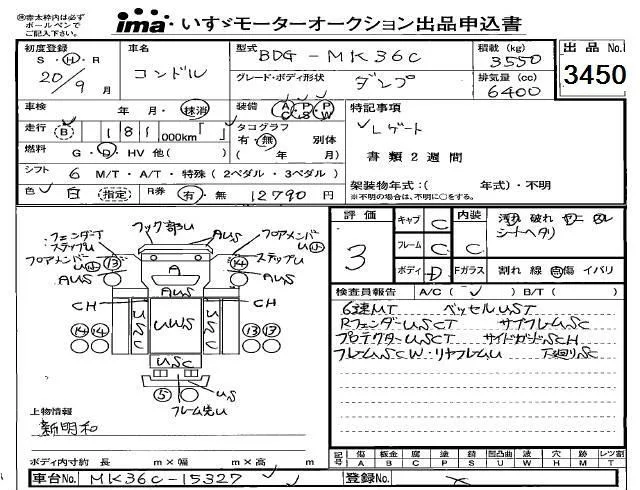 ima・いすゞモーターオークション出品申込書
㊟赤太枠内は必ず
ボールペンで
ご記入ください。
初度登録
S・Ⓗ・R
20/9月
車名
コンドル
型式
BDG-MK36C
グレード・ボディ形状
ダンプ
積載(kg)
3550
排気量(cc)
6400
出品No.
3450
車検 年 月・抹消
装備 AC・PS・PW
特記事項
Lゲート
書類2週間
走行 B 181,000km「 」
タコグラフ
有・無 別体
( 年 月)
燃料 G・D・HV 他( )
シフト 6 M/T・A/T・特殊(2ペダル・3ペダル)
架装物年式:( 年式)・不明
※不明の場合は、不明に○をする。
色 白 (指定) R券 有・無 12790円
評価
3
キャブ C
フレーム C
ボディ D
内装 C
Fガラス
汚れ 破れ
シートヘタリ
割れ 線 傷 イバリ
検査員報告 A/C( ) B/T( )
6速MT ベッセルUST
RフェンダーUSCT サブフレームSC
プロテクターUSCT サイドガードSCH
フレームSCW・リヤフレームU 下廻りSC
フェンダーT
ステップU
フック部U
フロアメンバーU
AUS
AUS
フロアメンバーU
ステップU
AUS
A
AUS
CH
CH
USC
UWS
USC
⑭⑭
⑬⑬
USC
US
⑤
フレーム先U
上物情報
新明和
ボディ内寸約 長 m×幅 m×高 m
記号 傷 板金 腐 塗 錆 凹凸曲 波 穴 跡 レツ割
A B C P S U W H M T
車台No. MK36C-15327
登録No.